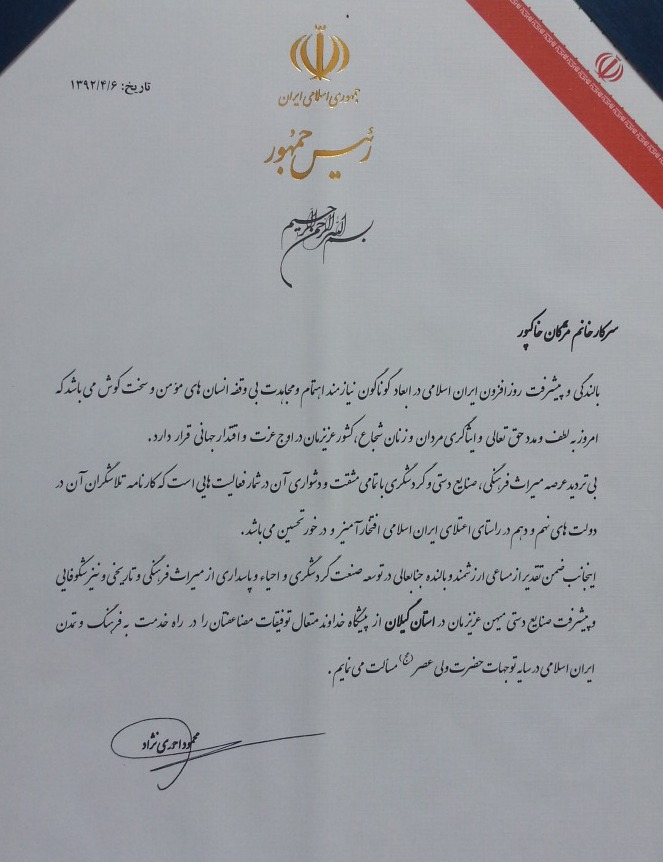 جمهوری اسلامی ایران
رئیس جمهور
تاریخ: ۱۳۹۲/۴/۶
بسم الله الرحمن الرحیم
سرکار خانم مژگان خاکپور
بالندگی و پیشرفت روزافزون ایران اسلامی در ابعاد گوناگون نیازمند اهتمام و مجاهدت بی وقفه انسان های مؤمن و سخت کوش می باشد که
امروز به لطف و مدد حق تعالی و ایثارگری مردان و زنان شجاع، کشور عزیزمان در اوج عزت و اقتدار جهانی قرار دارد.
بی تردید عرصه میراث فرهنگی، صنایع دستی و گردشگری با تمامی مشقت و دشواری آن در شمار فعالیت هایی است که کارنامه تلاشگران آن در
دولت های نهم و دهم در راستای اعتلای ایران اسلامی افتخارآمیز و در خور تحسین می باشد.
اینجانب ضمن تقدیر از مساعی ارزشمند و بالنده جنابعالی در توسعه صنعت گردشگری و احیاء و پاسداری از میراث فرهنگی و تاریخی و نیز شکوفایی
و پیشرفت صنایع دستی میهن عزیزمان در استان گیلان از پیشگاه خداوند متعال توفیقات مضاعفتان را در راه خدمت به فرهنگ و تمدن
ایران اسلامی در سایه توجهات حضرت ولی عصر (عج) مسألت می نمایم.
محمود احمدی نژاد